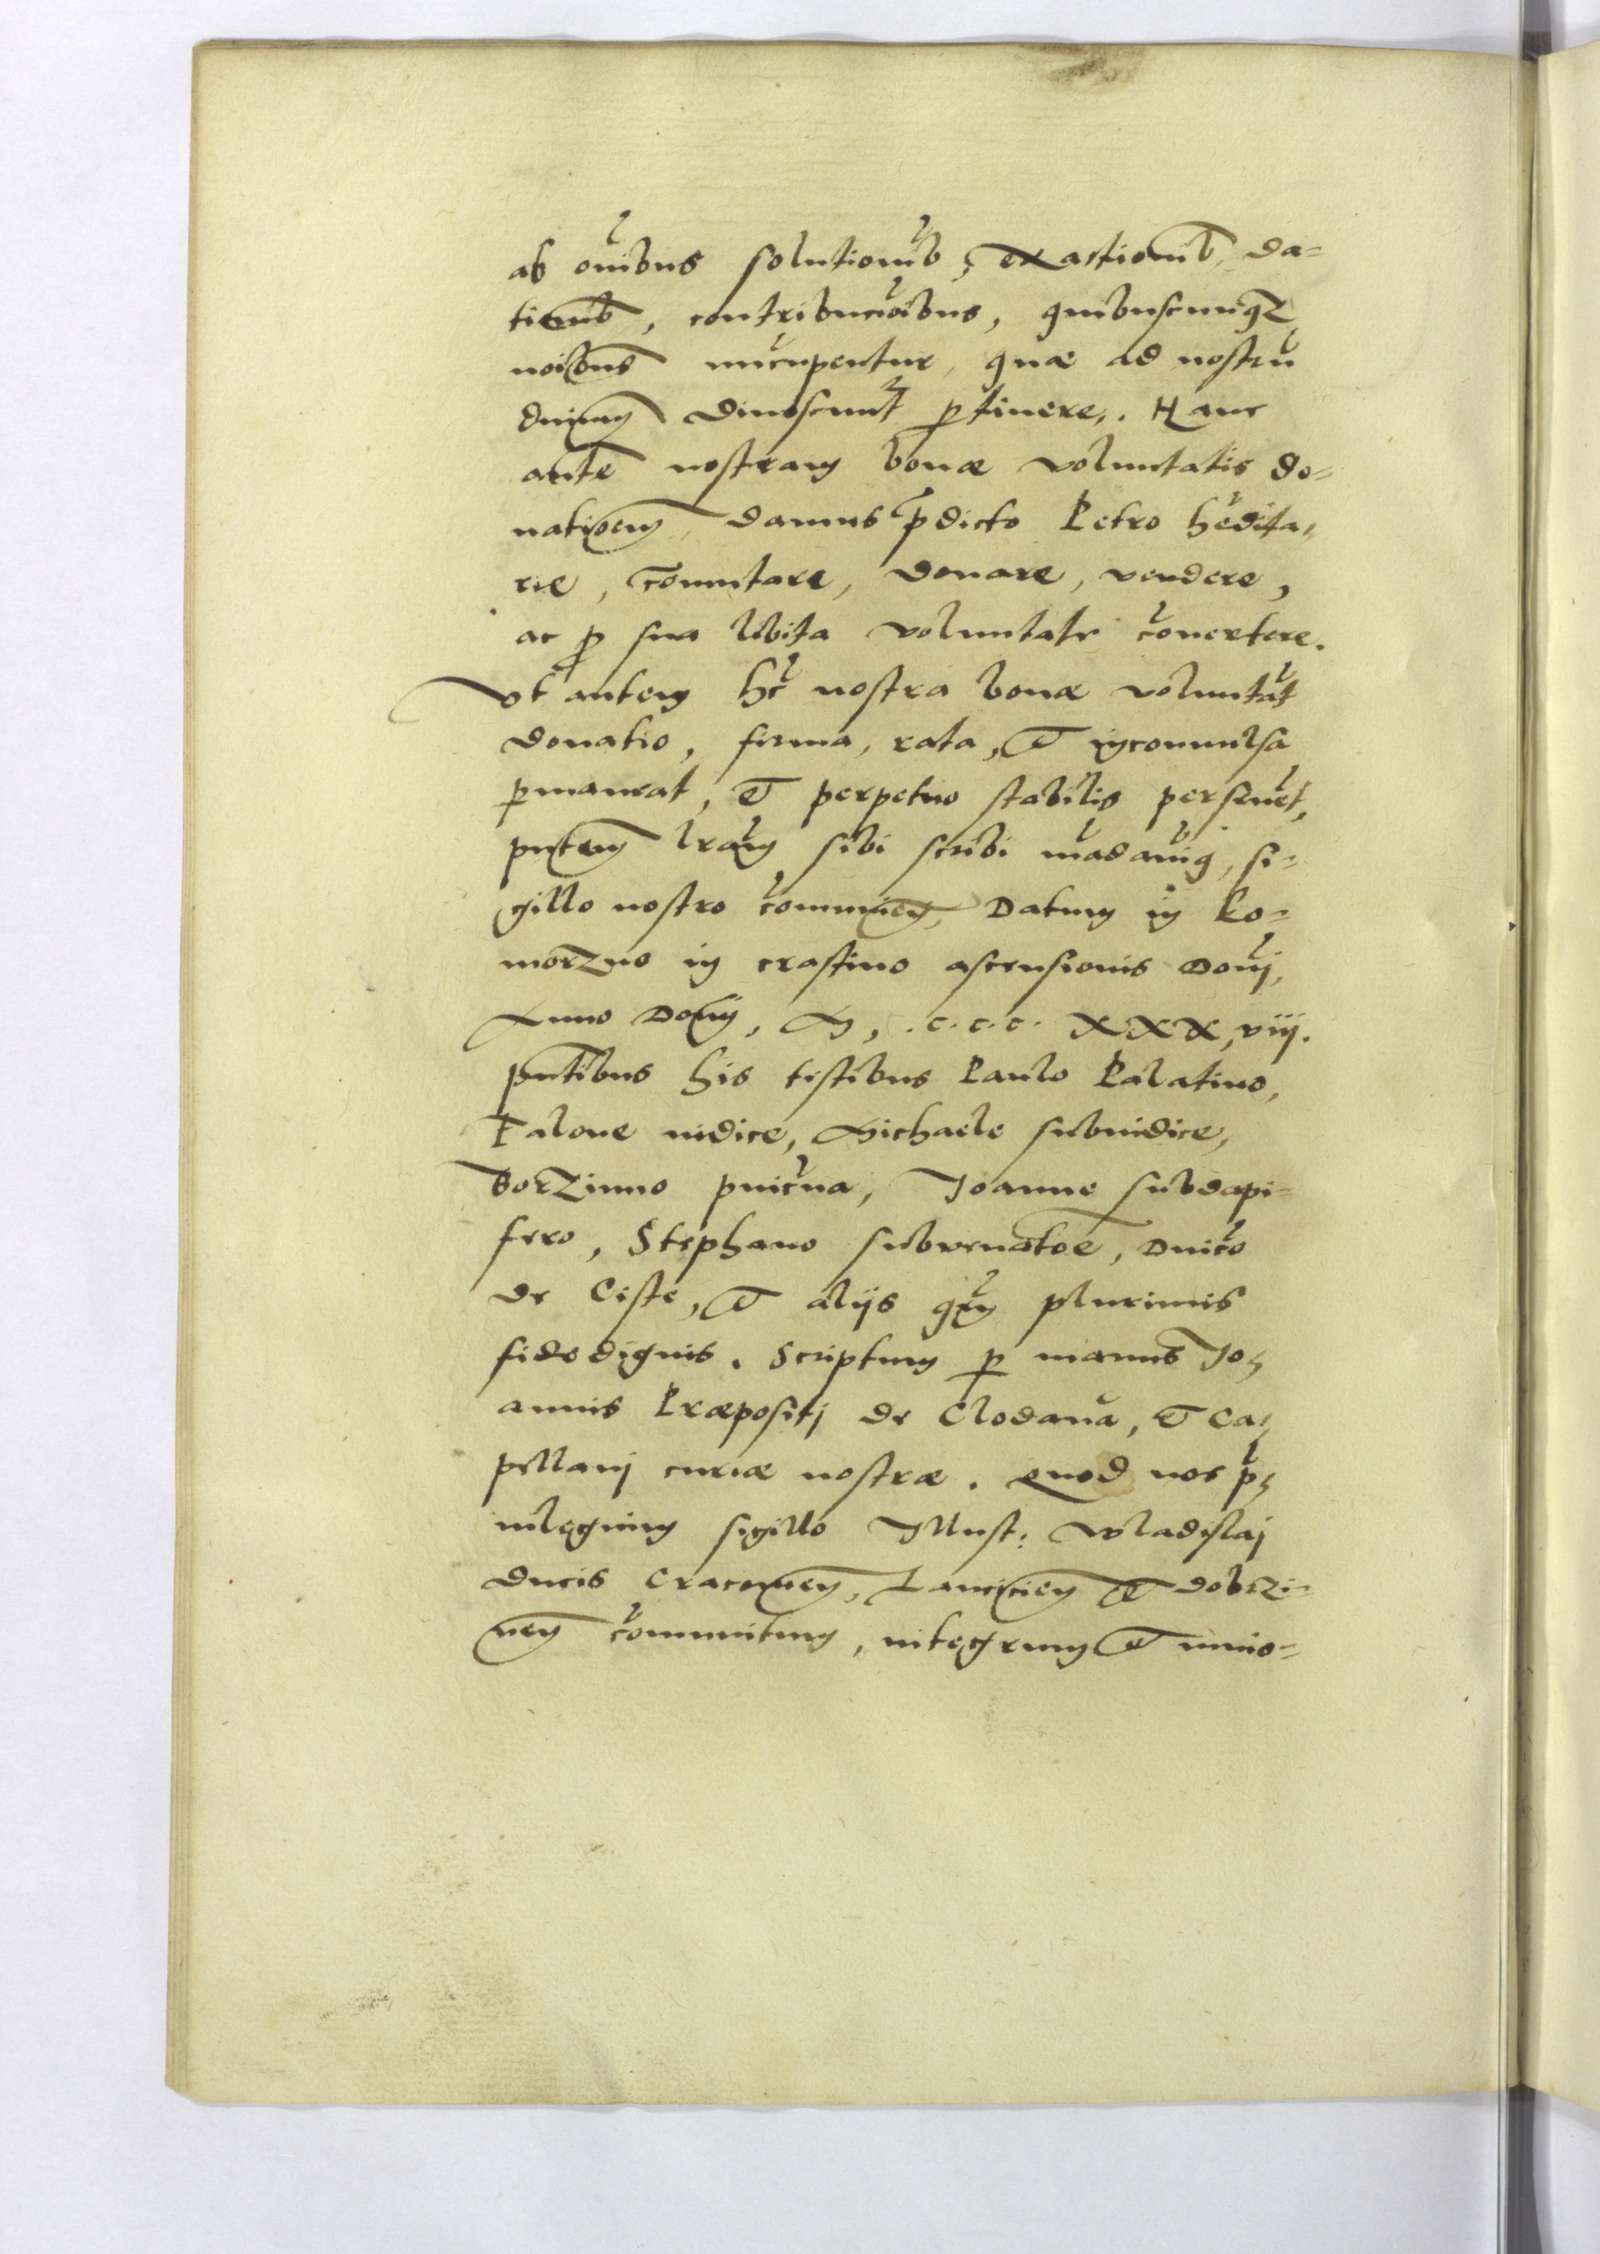 ab om̃ibus solutionib, exactionib, da-
tionib, contribucõibus, quibuscunq̃
noĩbus nũcupentur, quæ ad nostrũ
dñium dinoscunt̃ ptinere. Hanc
aũte nostram bonæ voluntatis do-
nationem, damus p̃dicto Petro hẽdita-
rie, cõmutare, donare, vendere,
ac p sua libita voluntate cõuertere.
Vt autem hẽc nostra bonæ voluntat̃
donatio, firma, rata, et inconuulsa
pmaneat, et perpetuo stabilis perseuẽt,
pñtem lr̃am sibi scribi mãdauimq, si-
gillo nostro cõmuniem, Datum in Ko-
morzno in crastino ascensionis Domĩ,
Anno Domĩ, M, .c.c.c. XXX, viij.
pñtibus his testibus Paulo Palatino,
Falone iudice, Michaele subiudice,
Borzinno pincẽna, Joanne subdapi-
fero, Stephano subvenatoẽ, Dnicõ
de Ceste, et alijs q̃m plurimis
fide dignis. Scriptum p manus Jo-
annis Præpositi de Clodaua, et Ca-
pellani curiæ nostræ. Quod nos p-
uilegium sigillo Illust: Wladislai
Ducis Cracouiem, Lanciciem et Dobrzi-
nem cõmunitum, integrum et inuio-